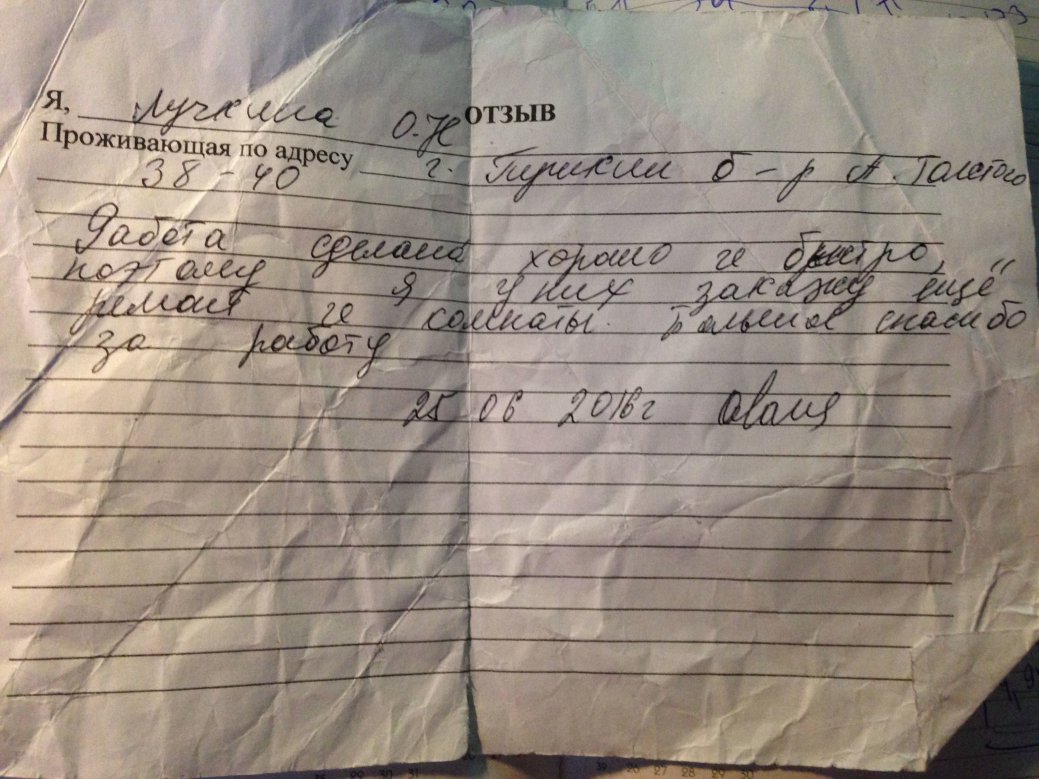 ОТЗЫВ
Я, Лучкина О.Н
Проживающая по адресу г. Пушкин б-р А. Толстого
38-40
Работа сделана хорошо и быстро,
поэтому я у них закажу ещё
ремонт и комнаты. Большое спасибо
за работу
25 06 2016г